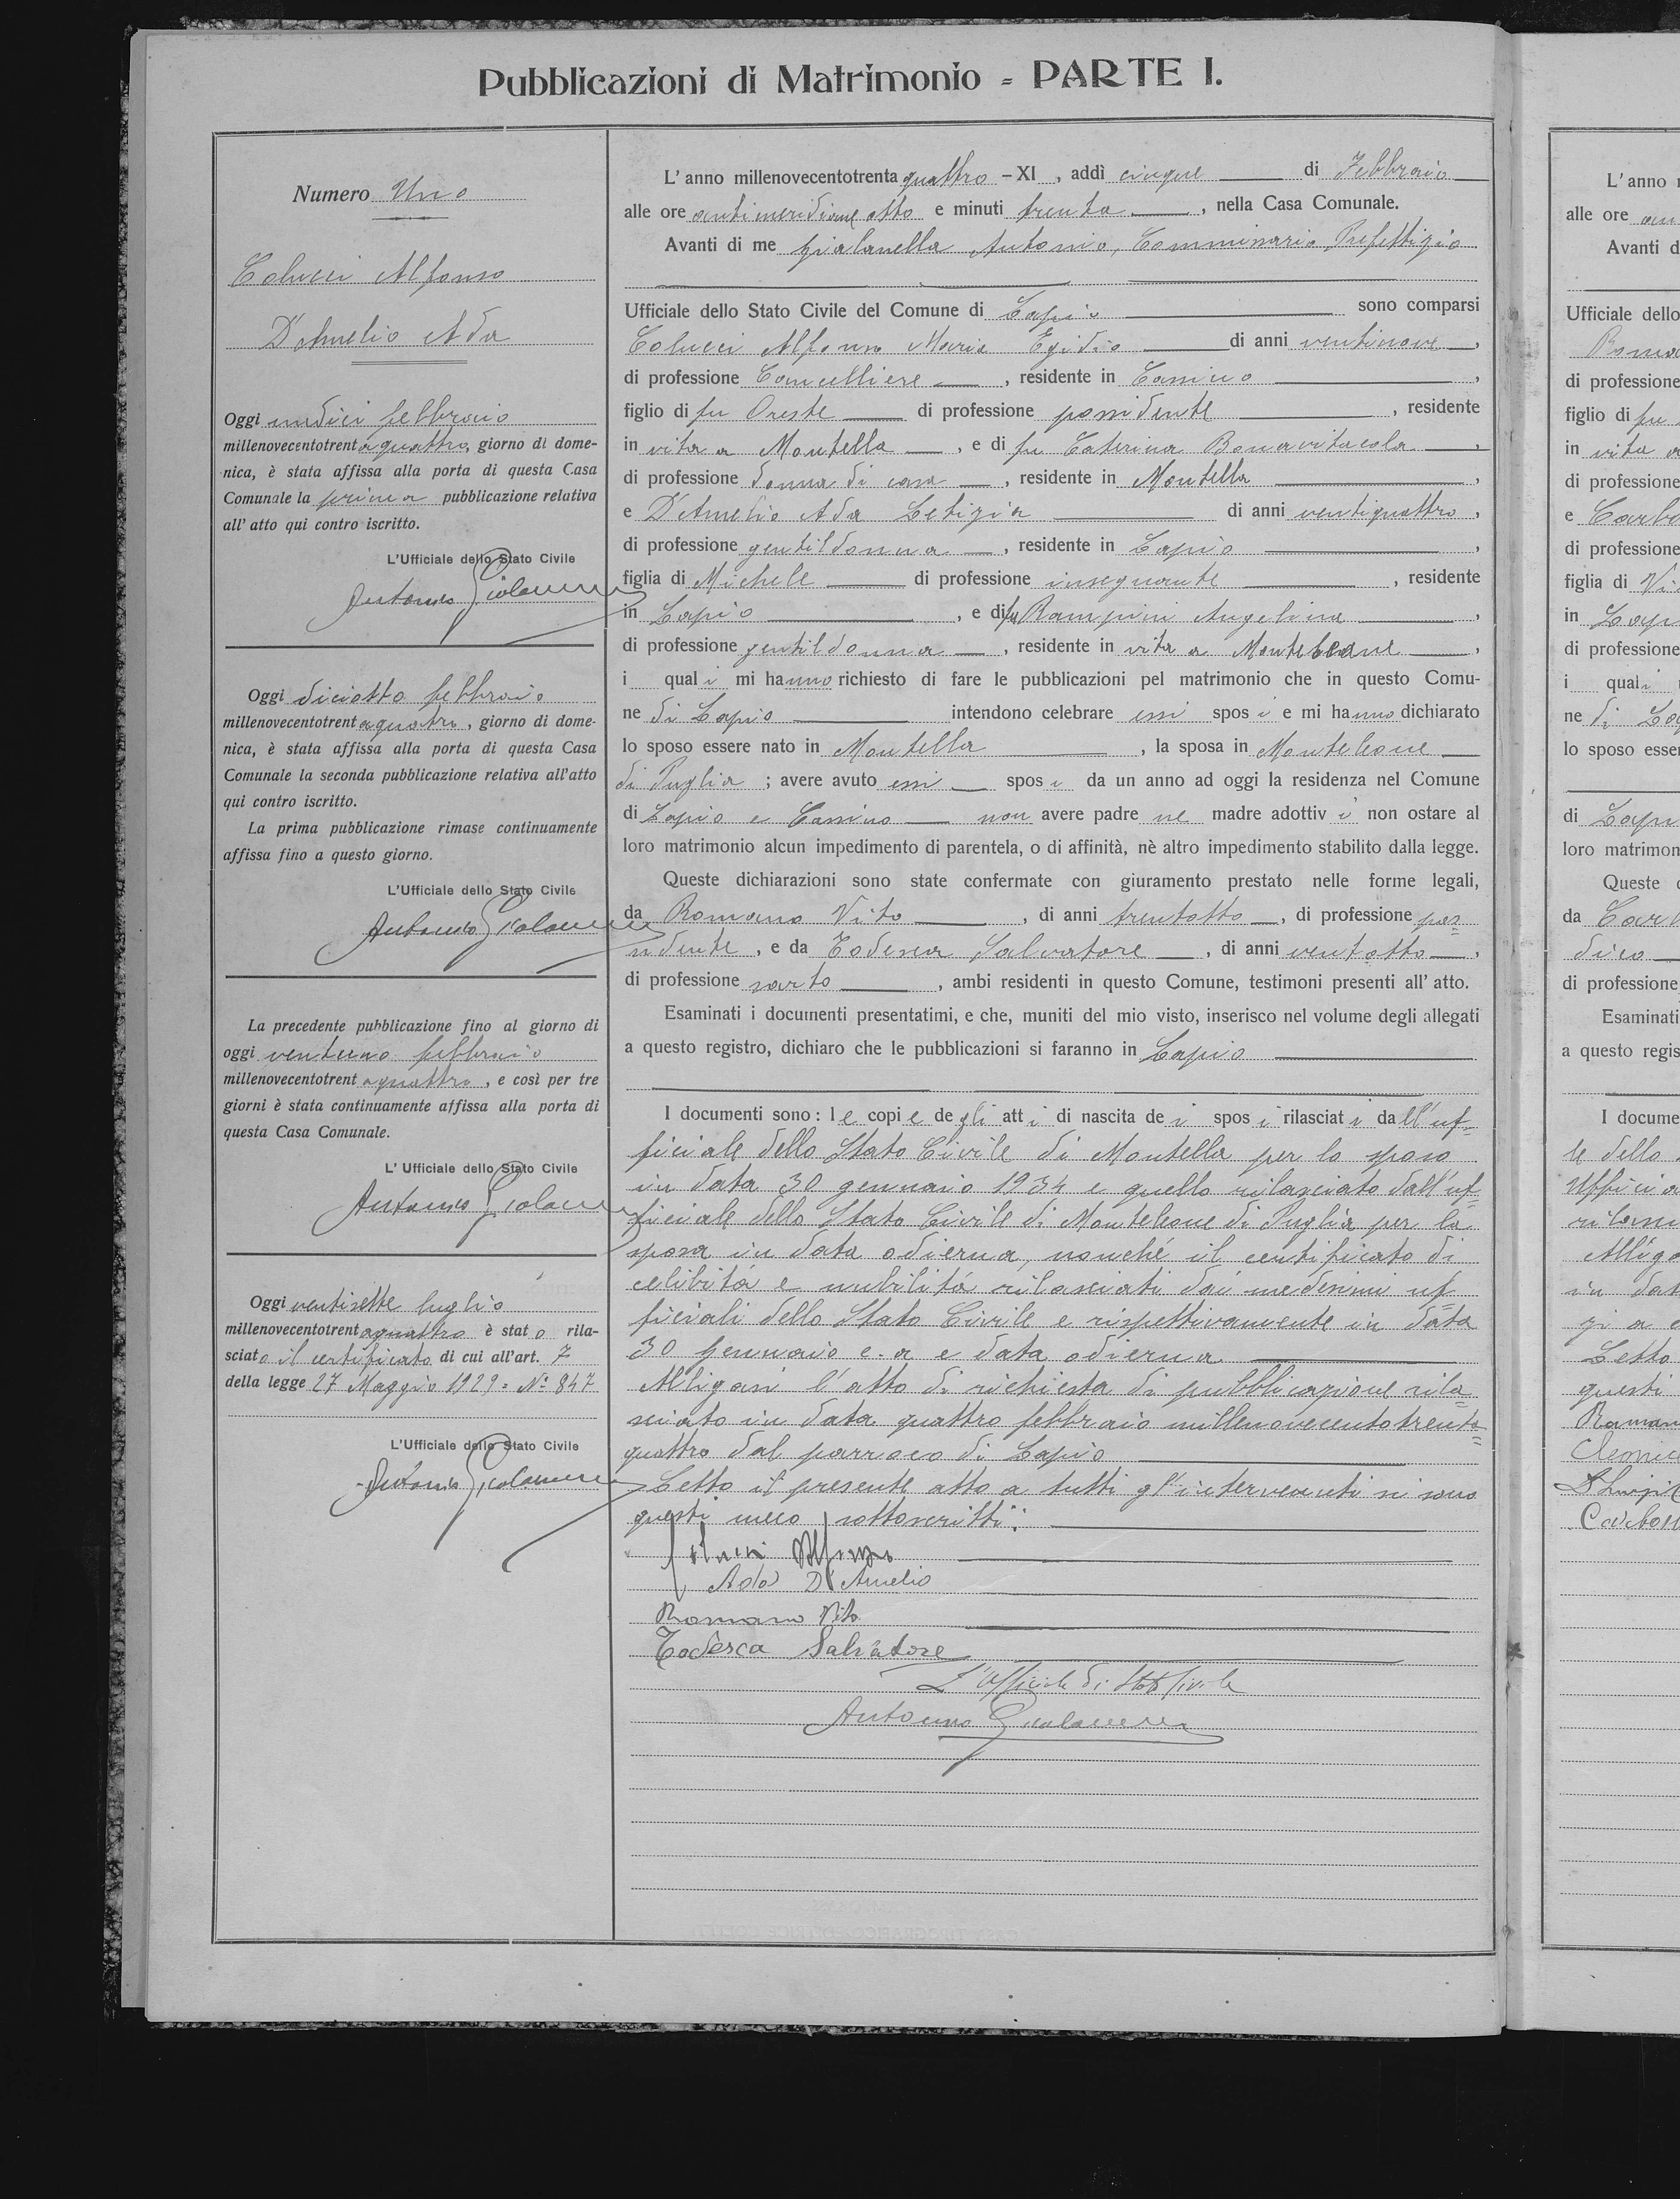 Pubblicazioni di Matrimonio - PARTE I.
Numero Uno
Colucci Alfonso
D'Amelio Ada
Oggi undici febbraio
millenovecentotrentaquattro, giorno di dome-
nica, è stata affissa alla porta di questa Casa
Comunale la prima pubblicazione relativa
all'atto qui contro iscritto.
L'Ufficiale dello Stato Civile
Antonio
Oggi diciotto febbraio
millenovecentotrentaquattro, giorno di dome-
nica, è stata affissa alla porta di questa Casa
Comunale la seconda pubblicazione relativa all'atto
qui contro iscritto.
La prima pubblicazione rimase continuamente
affissa fino a questo giorno.
L'Ufficiale dello Stato Civile
Antonio
La precedente pubblicazione fino al giorno di
oggi ventuno febbraio
millenovecentotrentaquattro, e così per tre
giorni è stata continuamente affissa alla porta di
questa Casa Comunale.
L'Ufficiale dello Stato Civile
Antonio
Oggi ventisette luglio
millenovecentotrentaquattro è stato rila-
sciato il certificato di cui all'art. 7
della legge 27 Maggio 1929 = N° 847
L'Ufficiale dello Stato Civile
Antonio
L'anno millenovecentotrentaquattro - XI, addì cinque di Febbraio
alle ore antimeridiane otto e minuti trenta, nella Casa Comunale.
Avanti di me Gialanella Antonio, Commissario Prefettizio
Ufficiale dello Stato Civile del Comune di Lapio sono comparsi
Colucci Alfonso Maria Egidio di anni ventinove,
di professione Cancelliere, residente in Cassino,
figlio di fu Oreste di professione possidente, residente
in vita a Montella, e di fu Caterina Bonavitacola,
di professione donna di casa, residente in Montella,
e D'Amelio Ada Letizia di anni ventiquattro,
di professione gentildonna, residente in Lapio,
figlia di Michele di professione insegnante, residente
in Lapio, e di fu Rampini Angelina,
di professione gentildonna, residente in vita a Monteleone,
i quali mi hanno richiesto di fare le pubblicazioni pel matrimonio che in questo Comu-
ne di Lapio intendono celebrare essi sposi e mi hanno dichiarato
lo sposo essere nato in Montella, la sposa in Monteleone
di Puglia; avere avuto essi sposi da un anno ad oggi la residenza nel Comune
di Lapio e Cassino non avere padre ne madre adottivi non ostare al
loro matrimonio alcun impedimento di parentela, o di affinità, nè altro impedimento stabilito dalla legge.
Queste dichiarazioni sono state confermate con giuramento prestato nelle forme legali,
da Romano Vito, di anni trentotto, di professione pos=
sidente, e da Todesca Salvatore, di anni ventotto,
di professione sarto, ambi residenti in questo Comune, testimoni presenti all'atto.
Esaminati i documenti presentatimi, e che, muniti del mio visto, inserisco nel volume degli allegati
a questo registro, dichiaro che le pubblicazioni si faranno in Lapio
I documenti sono: le copie degli atti di nascita dei sposi rilasciati dall'uf-
ficiale dello Stato Civile di Montella per lo sposo
in data 30 gennaio 1934 e quello rilasciato dall'uf=
ficiale dello Stato Civile di Monteleone di Puglia per la
sposa in data odierna, nonché il certificato di
celibità e nubilità rilasciati dai medesimi uf=
ficiali dello Stato Civile e rispettivamente in data
30 gennaio c. a e data odierna
Alligasi l'atto di richiesta di pubblicazione rila=
sciato in data quattro febbraio millenovecentotrenta=
quattro dal parroco di Lapio
Letto il presente atto a tutti gl'intervenuti si sono
questi meco sottoscritti:
Colucci Alfonso
Ada D'Amelio
Romano Vito
Todesca Salvatore
L'Ufficiale di Stato Civile
Antonio
L'anno
alle ore
Avanti d
Ufficiale dello
di professione
figlio di fu
in vita a
di professione
e
di professione
figlia di
in Lap
di professione
i quali
ne di
lo sposo esse
di Lap
loro matrimon
Queste
da
dico
di professione
Esaminati
a questo regis
I docume
le dello
Letto
questi